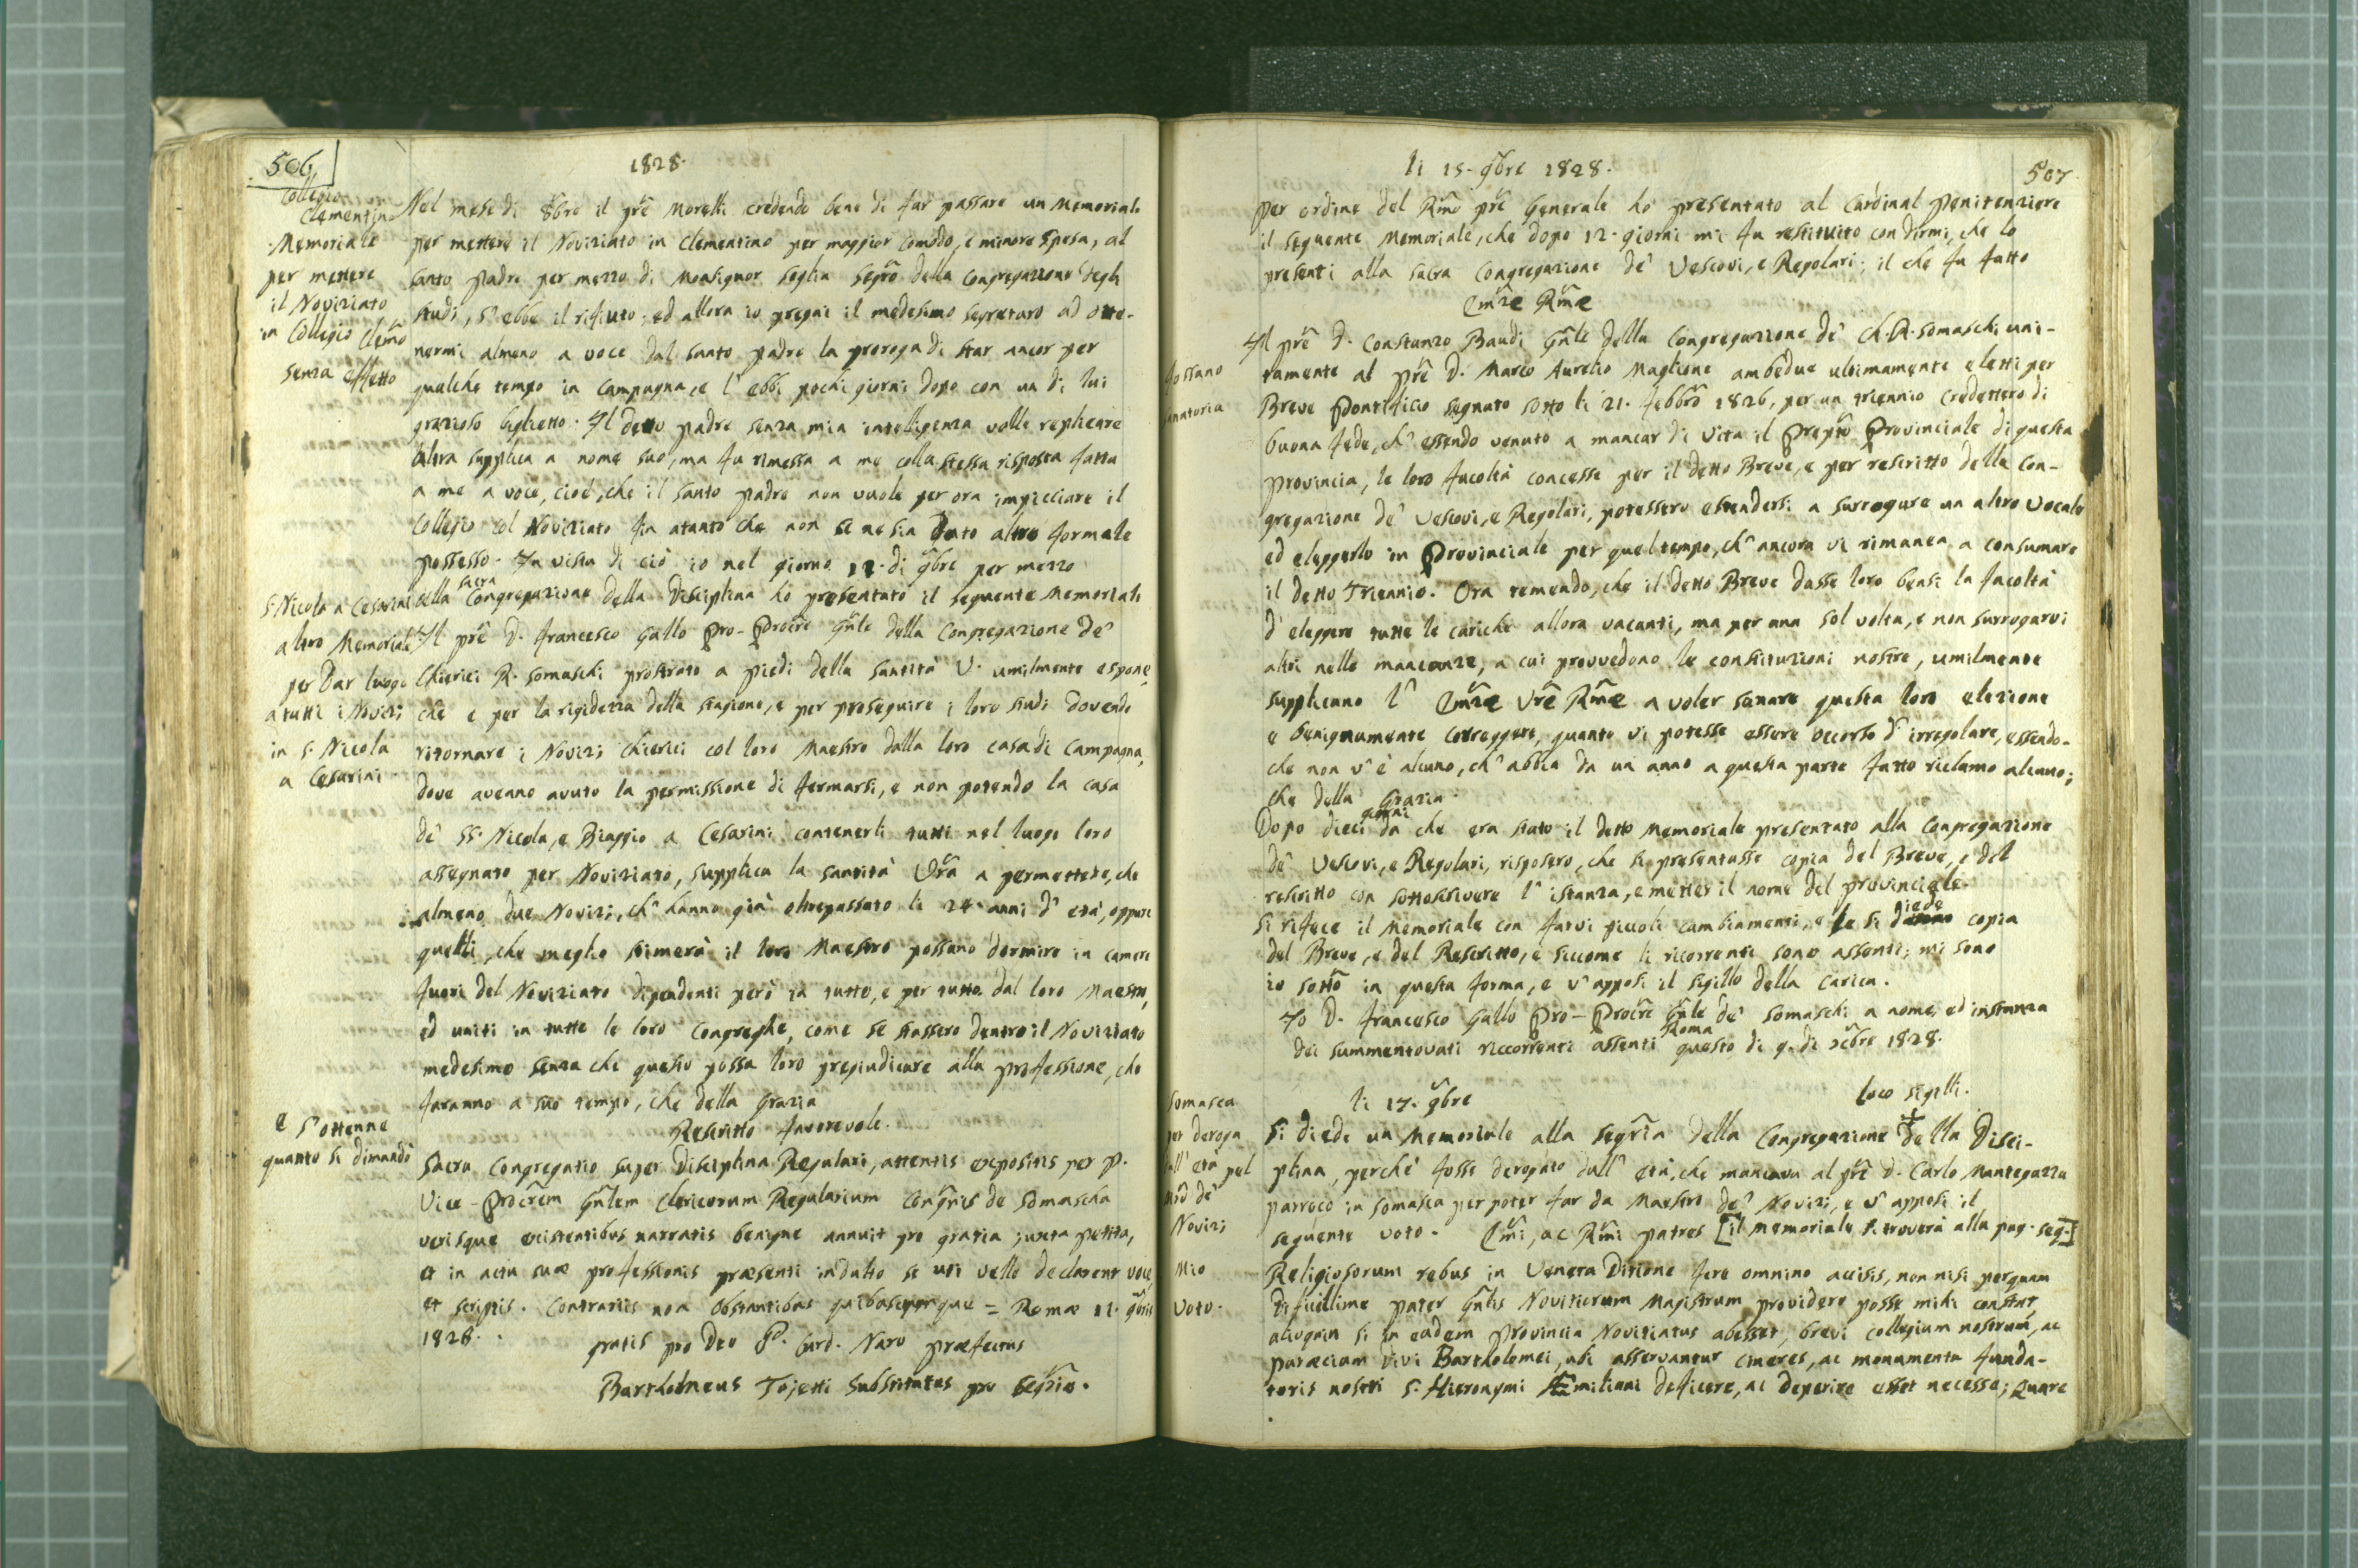 506
1828.
Collegio
Clementino
Memoriale
per mettere
il Noviziato
in Collegio Clemo
senza effetto
Nel mese di 8bre il pre Morelli credendo bene di far passare un Memoriale
per mettere il Noviziato in Clementino per maggior comodo, e minore spesa, al
santo Padre per mezzo di Monsignor Soglia Segro della Congregazione degli
studi, n'ebbe il rifiuto; ed allora io pregai il medesimo segretaro ad otte-
nermi almeno a voce dal santo Padre la proroga di star ancor per
qualche tempo in campagna, e l'ebbi pochi giorni dopo con un di lui
grazioso biglietto. Il detto padre senza mia intelligenza volle replicare
altra supplica a nome suo, ma fu rimessa a me colla stessa risposta fatta
a me a voce, cioè, che il santo padre non vuole per ora impicciare il
Collegio col Noviziato fin atanto che non se ne sia dato altro formale
possesso. In vista di ciò io nel giorno 12. di 9bre per mezzo
della sacra Congregazione della Disciplina ho presentato il seguente Memoriale
S. Nicola a Cesarini
altro Memoriale
per dar luogo
a tutti i Novizi
in S. Nicola
a Cesarini
Il pre D. Francesco Gallo Pro-Procre Gnle della Congregazione de'
Chierici R. Somaschi prostrato a piedi della Santità V. umilmente espone,
che e per la rigidezza della stagione, e per proseguire i loro studi dovendo
ritornare i Novizi chierici col loro Maestro dalla loro casa di Campagna,
dove aveano avuto la permissione di fermarsi, e non potendo la casa
de' SS. Nicola, e Biaggio a Cesarini contenerli tutti nel luogo loro
assegnato per Noviziato, supplica la santità Vra a permettere, che
almeno due Novizi, ch'hanno già oltrepassato li 24. anni d'età, oppure
quelli, che meglio stimerà il loro Maestro possano dormire in camere
fuori del Noviziato dipendenti però in tutto, e per tutto dal loro Maestro,
ed uniti in tutte le loro Congreghe, come se stassero dentro il Noviziato
medesimo senza che questo possa loro pregiudicare alla professione, che
faranno a suo tempo, che della Grazia
e s'ottenne
quanto si dimandò
Rescritto favorevole.
Sacra Congregatio super Disciplina Regulari, attentis expositis per P.
Vice-Procrem Gnlem Clericorum Regularium Congnis de Somascha
verisque existentibus narratis benigne annuit pro gratia juxta petita,
et in actu suae professionis praesenti indulto se uti velle declarent voce,
et scriptis. Contrariis non obstantibus quibuscumque = Romae 12. 9bris
1828.
gratis pro Deo P. Card. Naro praefectus
Bartholomeus Tojetti Substitutus pro Segrio.
li 15. 9bre 1828.
507
per ordine del Rmo pre Generale ho presentato al Cardinal Penitenziere
il seguente Memoriale, che dopo 12. giorni mi fu restituito con dirmi, che lo
presenti alla sacra Congregazione de' Vescovi, e Regolari; il che fu fatto
Emze Rme
Fossano
sanatoria
Il pre D. Constanzo Baudi Gnle della Congregazione de' Ch. R. Somaschi uni-
tamente al pre D. Marco Aurelio Maglione ambedue ultimamente eletti per
Breve Pontificio segnato sotto li 21. febbro 1826, per un triennio credettero di
buona fede, ch'essendo venuto a mancar di vita il Prepto Provinciale di questa
provincia, le loro facoltà concesse per il detto Breve, e per rescritto della Con-
gregazione de' Vescovi, e Regolari, potessero estendersi a surrogare un altro vocale
ed eleggerlo in Provinciale per quel tempo, ch'ancora vi rimanea a consumare
il detto Triennio. Ora temendo, che il detto Breve dasse loro bensì la facoltà
d'eleggere tutte le cariche allora vacanti, ma per una sol volta, e non surrogarvi
altri nelle mancanze, a cui provvedono le constituzioni nostre, umilmente
supplicano l' Emze Vre Rme a voler sanare questa loro elezione
e benignamente correggere, quanto vi potesse essere occorso d'irregolare, essendo-
che non v'è alcuno, ch'abbia da un anno a questa parte fatto riclamo alcuno;
che della Grazia.
Dopo dieci giorni da che era stato il detto Memoriale presentato alla Congregazione
de' Vescovi, e Regolari, risposero, che si presentasse copia del Breve, e del
rescritto con sottoscrivere l'istanza, e metter il nome del provinciale.
Si rifece il Memoriale con farvi piccoli cambiamenti, e le si diede copia
del Breve, e del Rescritto, e siccome li ricorrenti sono assenti; mi sono
io sotto in questa forma, e v'apposi il sigillo della carica.
Io D. Francesco Gallo Pro-Procre Gnle de' Somaschi a nome, ed instanza
dei summentovati riccorrenti assenti Roma questo di 9. di xcbre 1828.
loco sigilli.
Somasca
per deroga
dall'età pel
Mro de'
Novizi
li 17. 9bre
Si diede un Memoriale alla Segria della Congregazione della Disci-
plina, perchè fosse derogato dall'età, che mancava al pre D. Carlo Mantegazza
parroco in Somasca per poter far da Maestro de' Novizi, e v'apposi il
seguente voto. Emi, ac Rmi patres [il memoriale si troverà alla pag. seg.]
Mio
voto.
Religiosorum rebus in Veneta Ditione fere omnino accisis, non nisi perquam
difficillime pater Gnlis Novitiorum Magistrum providere posse mihi constat,
alioquin si in eadem Provincia Novitiatus abesset, brevi collegium nostrum, ac
paraeciam Divi Bartholomei, ubi asservantur cineres, ac monumenta funda-
toris nostri S. Hieronymi AEmiliani deficere, ac deperire esset necesse; Quare